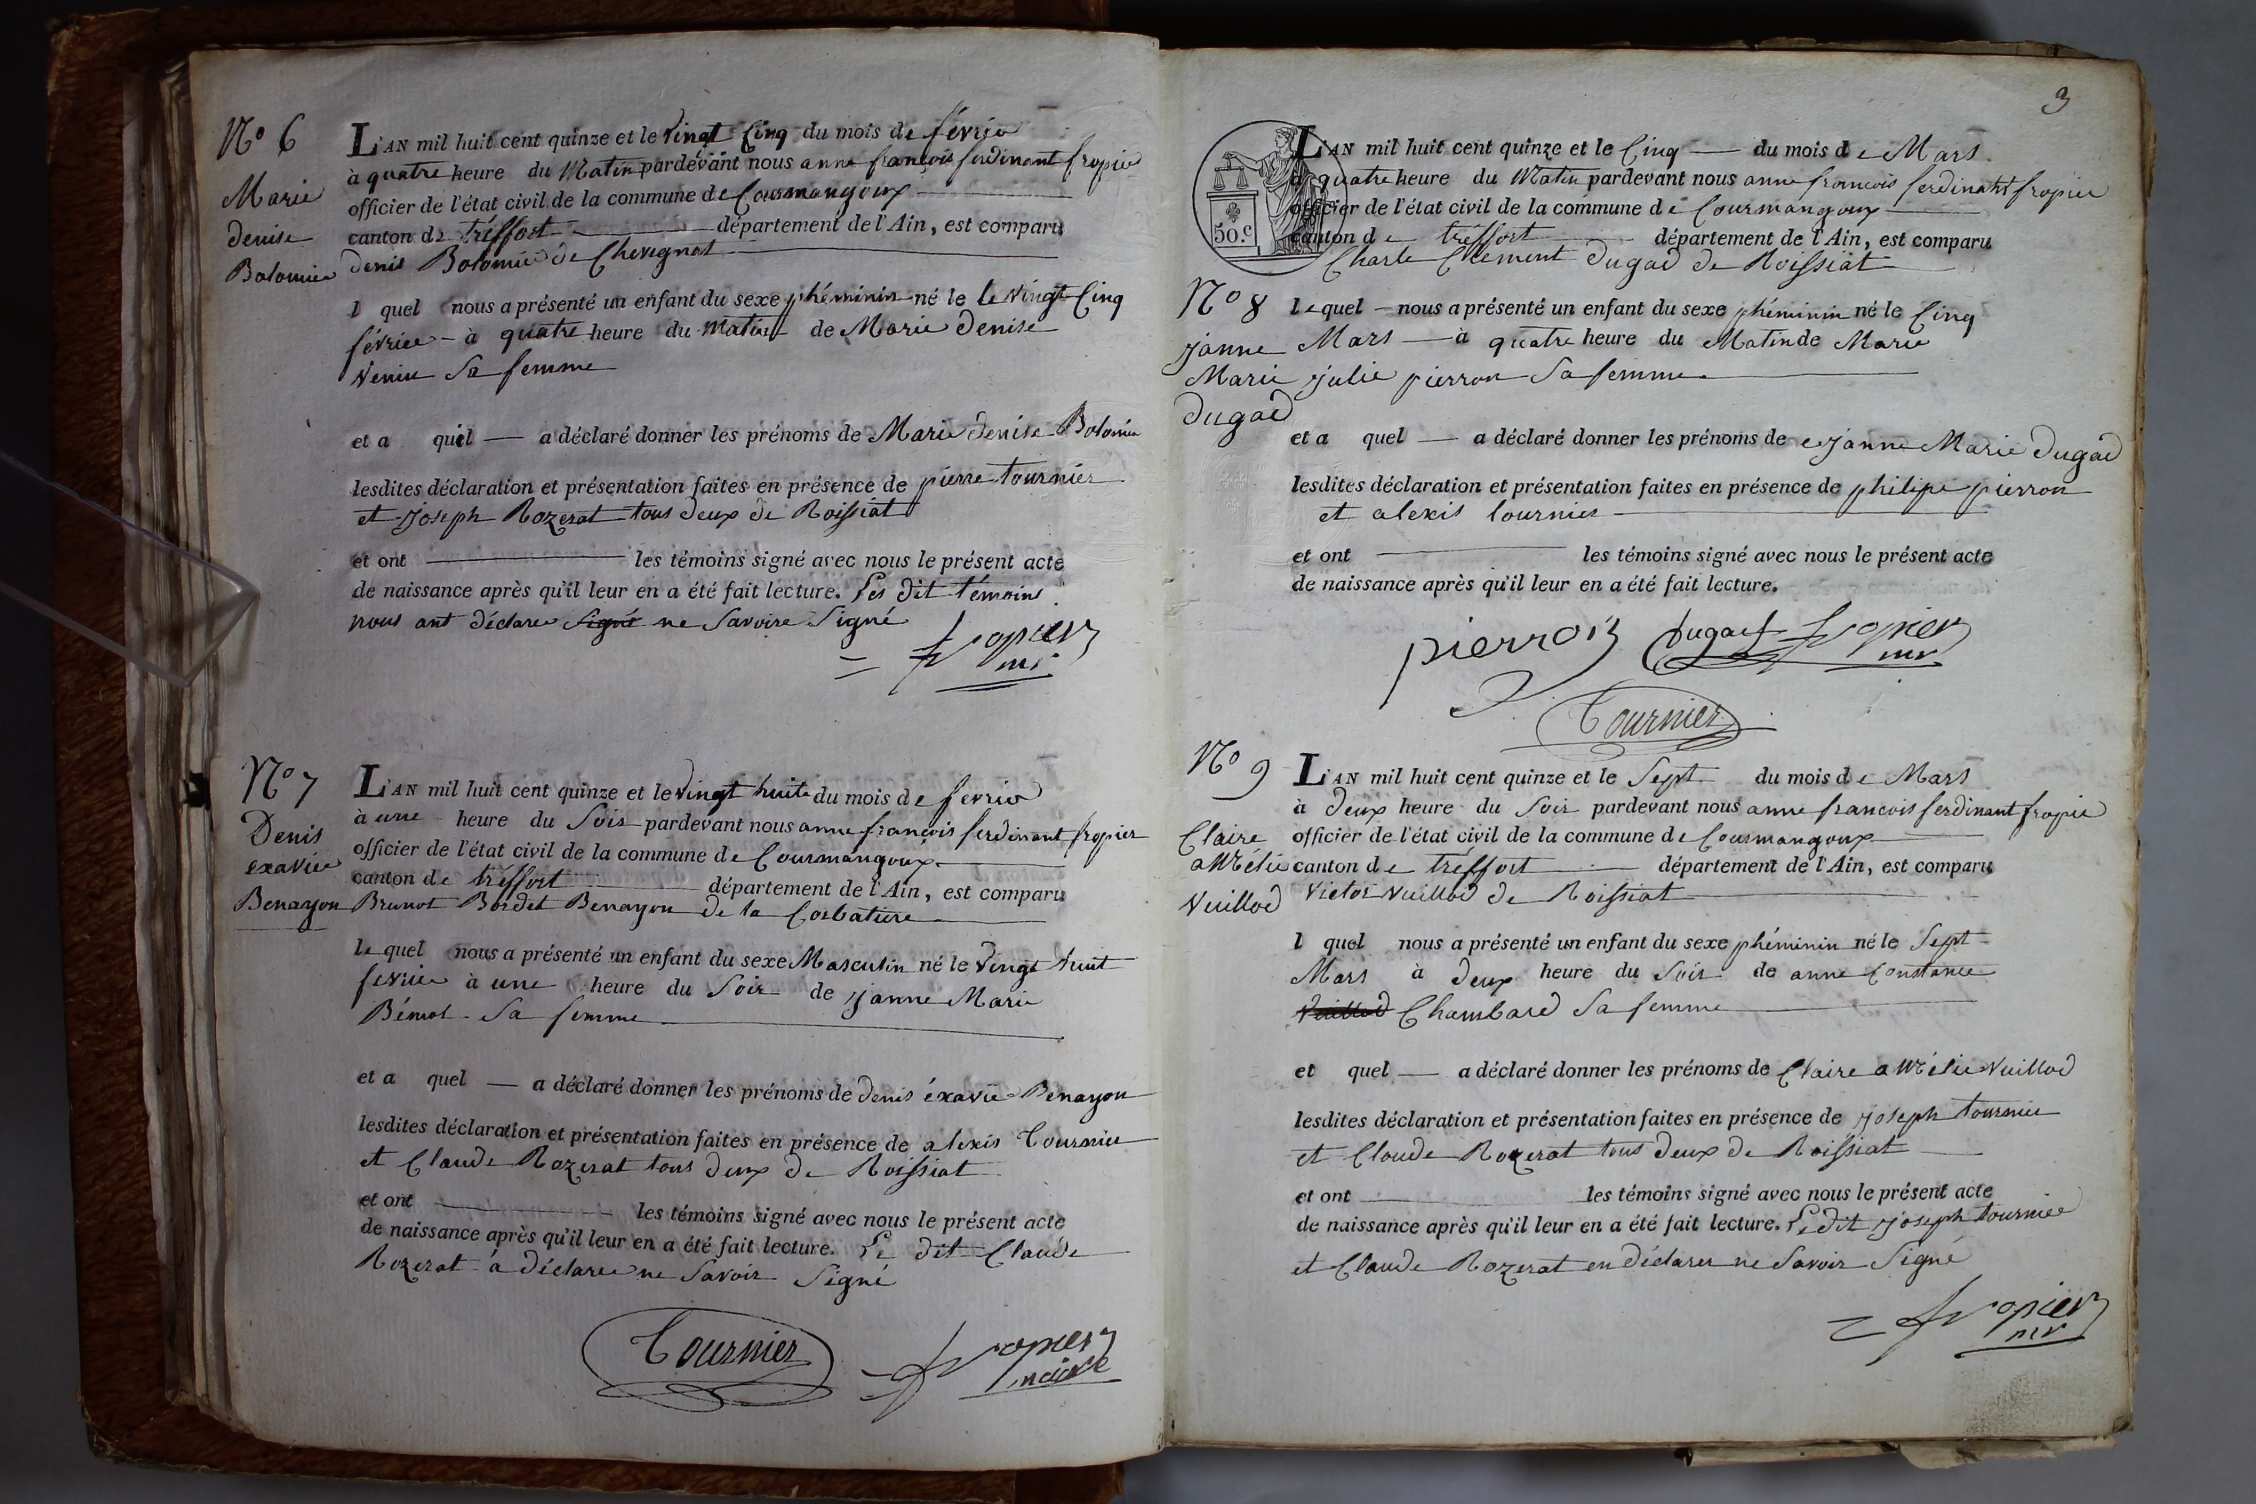 No 6
Marie
denise
Bolomier
L'AN mil huit cent quinze et le vingt Cinq du mois de févrie
à quatre heure du Matin pardevant nous anne françois ferdinant fropier
officier de l'état civil de la commune de Courmangoux
canton de tréffort département de l'Ain, est comparu
denis Bolomier de Chevignat
l quel nous a présenté un enfant du sexe phéminin né le le vingt Cinq
févriee à quatre heure du matin de Marie denise
Sa femme
et a quil a déclaré donner les prénoms de Marie denise Bolomier
lesdites déclaration et présentation faites en présence de pierre tournier
et joseph Rozerat tous deux de Roissiat
et ont les témoins signé avec nous le présent acte
de naissance après qu'il leur en a été fait lecture. Les dit témoins
nous ont déclare signé ne Savoire Signé
fropier
mr
No 7
Denis
exavie
Benayon
L'AN mil huit cent quinze et le vingt huite du mois de fevrie
à une heure du Soir pardevant nous anne françois ferdinant fropier
officier de l'état civil de la commune de Courmangoux
canton de treffort département de l'Ain, est comparu
Brunot Bordet Benayon de la Corbatiere
le quel nous a présenté un enfant du sexe Masculin né le vingt huit
fevriee à une heure du Soir de janne Marie
Sa femme
et a quel a déclaré donner les prénoms de denis éxavie Benayon
lesdites déclaration et présentation faites en présence de alexis Tournier
et Claude Rozerat tous deux de Roissiat
et ont les témoins signé avec nous le présent acte
de naissance après qu'il leur en a été fait lecture. Le dit Claude
Rozerat a déclaree ne Savoir Signé
Tournier
fropier
maire
3
50.c
L'AN mil huit cent quinze et le Cinq du mois de Mars
à quatre heure du Matin pardevant nous anne francois ferdinant fropier
officier de l'état civil de la commune de Courmangoux
canton de tréffort département de l'Ain, est comparu
Charle Clement dugad de Roissiat
No 8
janne
Marie
dugad
lequel nous a présenté un enfant du sexe phéminin né le Cinq
Mars à quatre heure du Matin de Marie
julie pierron Sa femme
et a quel a déclaré donner les prénoms de janne Marie dugad
lesdites déclaration et présentation faites en présence de philipe pierron
et alexis tournier
et ont les témoins signé avec nous le présent acte
de naissance après qu'il leur en a été fait lecture.
pierron dugad fropier
mr
Tournier
No 9
Claire
amélie
Vuillod
L'AN mil huit cent quinze et le Sept du mois de Mars
à deux heure du Soir pardevant nous anne francois ferdinant fropie
officier de l'état civil de la commune de Courmangoux
canton de tréffort département de l'Ain, est comparu
victor Vuillod de Roissiat
l quel nous a présenté un enfant du sexe phéminin né le Sept
Mars à deux heure du Soir de anne Constance
Vuillod Chambard Sa femme
et quel a déclaré donner les prénoms de Claire amélie Vuillod
lesdites déclaration et présentation faites en présence de joseph tournier
et Claude Rozerat tous deux de Roissiat
et ont les témoins signé avec nous le présent acte
de naissance après qu'il leur en a été fait lecture. Le dit joseph tournier
et Claude Rozerat en déclarer ne Savoir Signé
fropier
mr